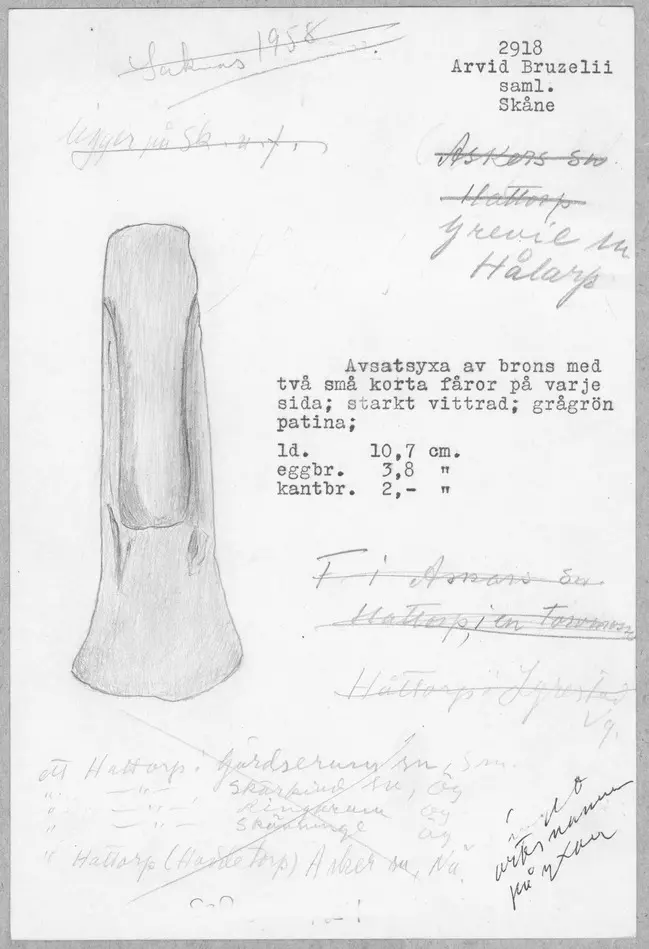 Saknas 1958
2918
Arvid Bruzelii
saml.
Skåne
ligger på Sk.
Askers sn
Hattorp
Grevie sn
Hålarp
Avsatsyxa av brons med
två små korta fåror på varje
sida; starkt vittrad; grågrön
patina;
ld. 10,7 cm.
eggbr. 3,8 "
kantbr. 2,- "
F. i Askers sn
Hattorp, i en torvmosse
Håttorp i
Vg.
ett Hattorp i Gärdserums sn, Sm.
" — " — Skärkind sn, Ög
" — " — Ringarum Ög
" — " — Skänninge Ög
" Hattorp (Haddetorp) Asker sn, Nä.
ortsnamn
på yxan